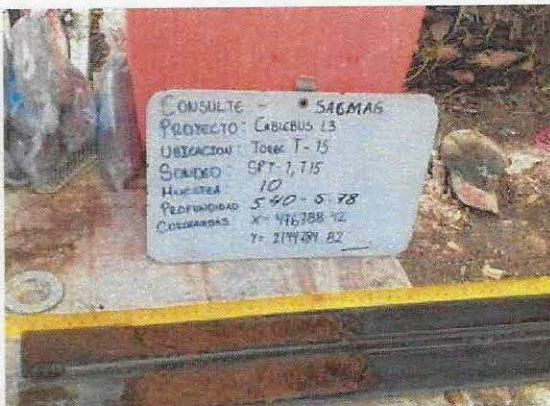 CONSULTE - SACMAG
PROYECTO: CABLEBUS L3
UBICACION: TORRE T-15
SONDEO: SPT-1, T15
MUESTRA 10
PROFUNDIDAD 5 40 - 5.78
COORDENADAS X= 476788 42
Y= 2144784 82